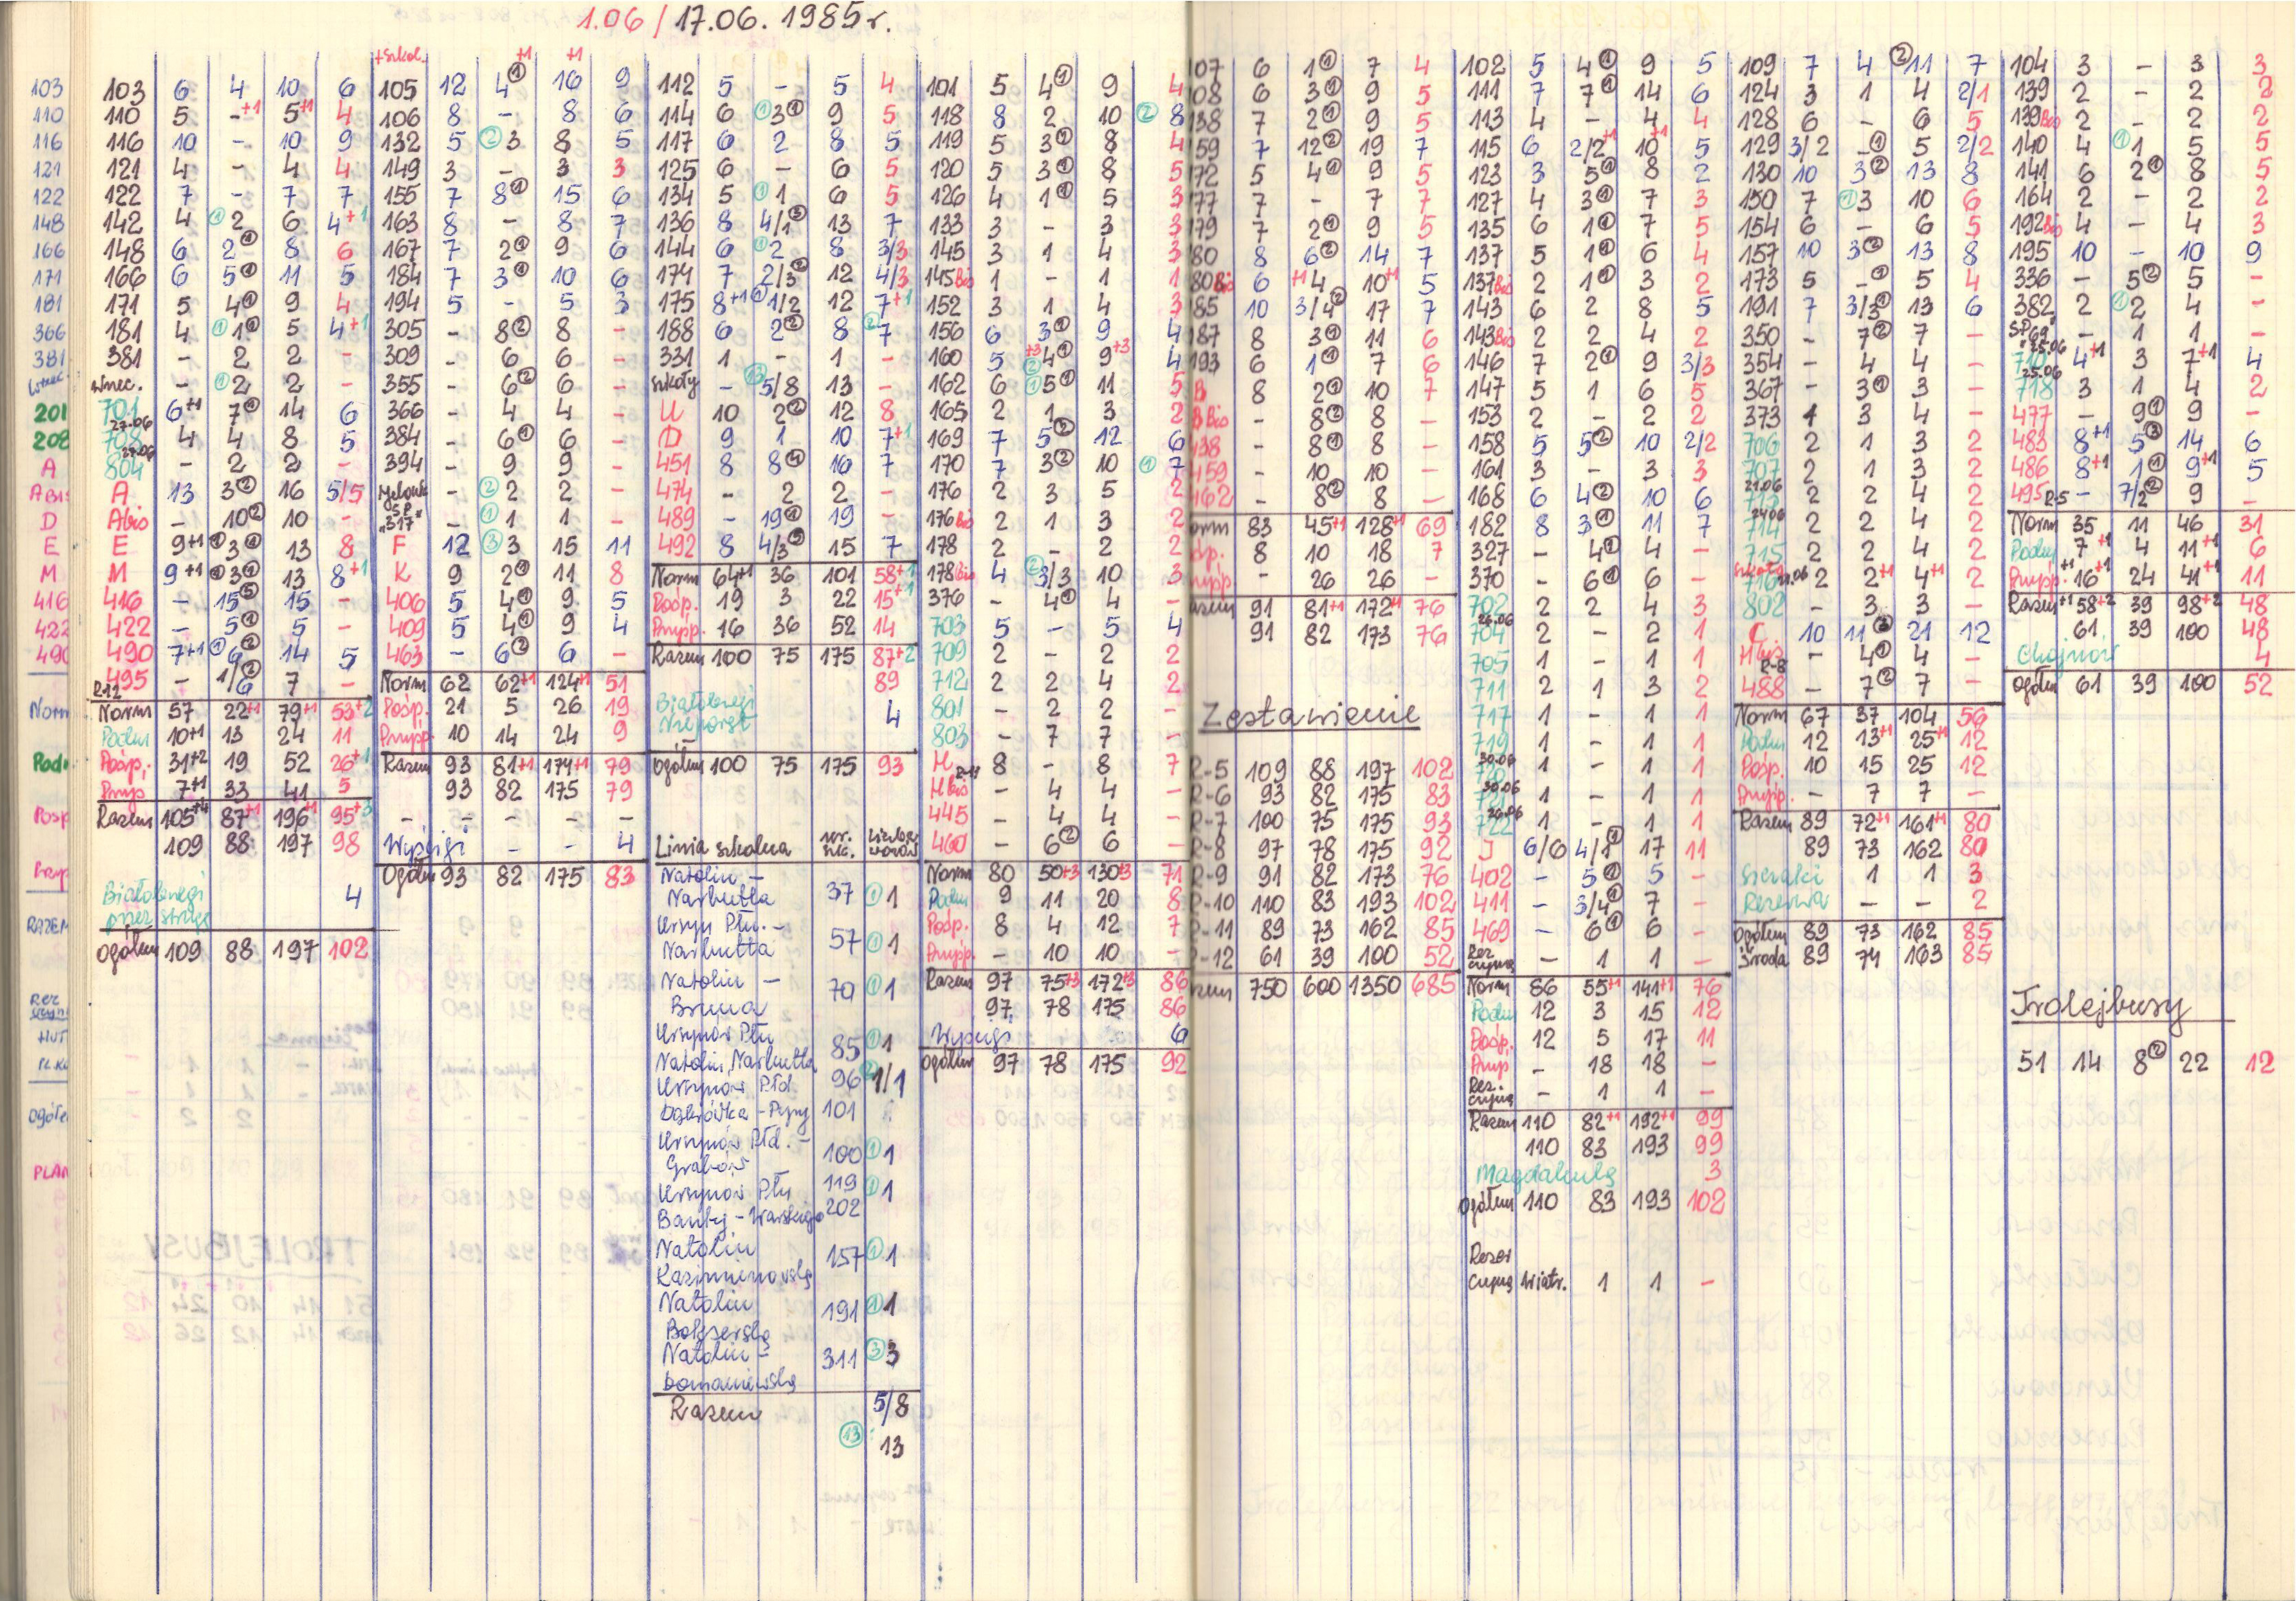 1.06/17.06.1985r.
103
110
116
121
122
148
166
171
181
366
381
201
208
A
D
E
M
416
422
RAZEM
103 6 4 10 6
110 5 -+1 5+1 4
116 10 - 10 9
121 4 - 4 4
122 7 - 7 7
142 4 ①2 6 4+1
148 6 2① 8 6
166 6 5① 11 5
171 5 4① 9 4
181 4 ①1① 5 4+1
381 - 2 2 -
wnec. - ①2 2 -
701 6+1 7① 14 6
27.06
708 4 4 8 5
27.06
804 - 2 2 -
A 13 3② 16 5/5
Abis - 10② 10 -
E 9+1 ①3① 13 8
M 9+1 ①3① 13 8+1
416 - 15⑤ 15 -
422 - 5① 5 -
490 7+1 ①6② 14 5
495 - 1/6② 7 -
R12
Norm 57 22+1 79+1 53+2
Podm 10+1 13 24 11
Posp. 31+2 19 52 26+1
Przysp 7+1 33 41 5
Razem 105+4 87+1 196+1 95+3
109 88 197 98
Białobrzegi 4
przez strugę
Ogółem 109 88 197 102
+szkol. +1 +1
105 12 4① 16 9
106 8 - 8 6
132 5 ②3 8 5
149 3 - 3 3
155 7 8① 15 6
163 8 - 8 7
167 7 2① 9 6
184 7 3① 10 6
194 5 - 5 3
305 - 8② 8 -
309 - 6 6 -
355 - 6② 6 -
366 - 4 4 -
384 - 6① 6 -
394 - 9 9 -
- ②2 2 -
Sp.
"317" - ①1 1 -
F 12 ③3 15 11
K 9 2① 11 8
406 5 4① 9 5
409 5 4① 9 4
463 - 6② 6 -
Norm 62 62+1 124+1 51
Posp. 21 5 26 19
Przysp. 10 14 24 9
Razem 93 81+1 174+1 79
93 82 175 79
- - - - -
Wyścigi - - 4
Ogółem 93 82 175 83
112 5 - 5 4
114 6 ①3① 9 5
117 6 2 8 5
125 6 - 6 5
134 5 ①1 6 5
136 8 4/1③ 13 7
144 6 ①2 8 3/3
174 7 2/3② 12 4/3
175 8+1 ①1/2 12 7+1
188 6 2② 8 ②7
331 1 - 1 -
szkoły - ⑬5/8 13 -
U 10 2② 12 8
D 9 1 10 7+1
451 8 8④ 16 7
474 - 2 2 -
489 - 19① 19 -
492 8 4/3③ 15 7
Norm 64+1 36 101 58+1
Posp. 19 3 22 15+1
Przysp. 16 36 52 14
Razem 100 75 175 87+2
89
Białobrzegi
Nieporęt 4
-
Ogółem 100 75 175 93
Linia szkolna nr. szk. liczba wozów
Natolin -
Narbutta 37 ①1
Ursyn Płn. -
Narbutta 57 ①1
Natolin -
Bruna 70 ①1
Ursynów Płn 85 ①1
Natolin, Narbutta
Ursynów Płd. 96 ②1/1
Dąbrówka - Pyry 101
Ursynów Płd. -
Grabów 100 ①1
Ursynów Płn 119 ①1
Bartyc - Warskiego 202
Natolin 157 ①1
Kazimierzowska
Natolin 191 ①1
Bokserska
Natolin - 311 ③3
Domaniewska
Razem 5/8
⑬ 13
101 5 4① 9 4
118 8 2 10 ②8
119 5 3① 8 4
120 5 3① 8 5
126 4 1① 5 3
133 3 - 3 3
145 3 1 4 3
145Bis 1 - 1 1
152 3 1 4 3
156 6 3① 9 4
160 5 +3②4① 9+3 4
162 6 ①5① 11 5
165 2 1 3 2
169 7 5② 12 6
170 7 3② 10 ①7
176 2 3 5 2
176Bis 2 1 3 2
178 2 - 2 2
178Bis 4 ②3/3 10 3
376 - 4① 4 -
703 5 - 5 4
709 2 - 2 2
712 2 2 4 2
801 - 2 2 -
803 - 7 7 -
H R-11 8 - 8 7
HBis - 4 4 -
445 - 4 4 -
460 - 6② 6 -
Norm 80 50+3 130+3 71
Podm 9 11 20 8
Posp. 8 4 12 7
Przysp. - 10 10 -
Razem 97 75+3 172+3 86
97 78 175 86
Wyścigi 6
Ogółem 97 78 175 92
107 6 1① 7 4
108 6 3① 9 5
138 7 2① 9 5
159 7 12② 19 7
172 5 4① 9 5
177 7 - 7 7
179 7 2① 9 5
180 8 6② 14 7
180Bis 6 +14 10+1 5
185 10 3/4② 17 7
187 8 3① 11 6
193 6 1① 7 6
B 8 2① 10 7
B Bis - 8② 8 -
438 - 8① 8 -
459 - 10 10 -
462 - 8② 8 -
Norm 83 45+1 128+1 69
Posp. 8 10 18 7
Przysp - 26 26 -
Razem 91 81+1 172+1 76
91 82 173 76
Zestawienie
R-5 109 88 197 102
R-6 93 82 175 83
R-7 100 75 175 93
R-8 97 78 175 92
R-9 91 82 173 76
R-10 110 83 193 102
R-11 89 73 162 85
R-12 61 39 100 52
Razem 750 600 1350 685
102 5 4① 9 5
111 7 7① 14 6
113 4 - 4 4
115 6 2/2+1 10+1 5
123 3 5① 8 2
127 4 3① 7 3
135 6 1① 7 5
137 5 1① 6 4
137Bis 2 1① 3 2
143 6 2 8 5
143Bis 2 2 4 2
146 7 2① 9 3/3
147 5 1 6 5
153 2 - 2 2
158 5 5② 10 2/2
161 3 - 3 3
168 6 4② 10 6
182 8 3① 11 7
327 - 4① 4 -
370 - 6① 6 -
702 2 2 4 3
26.06
704 2 - 2 1
705 1 - 1 1
711 2 1 3 2
717 1 - 1 1
719 1 - 1 1
30.06
720 1 - 1 1
30.06
721 1 - 1 1
26.06
722 1 - 1 1
J 6/6 4/1① 17 11
402 - 5① 5 -
411 - 3/4① 7 -
469 - 6① 6 -
Rez czynna - 1 1 -
Norm 86 55+1 141+1 76
Podm 12 3 15 12
Posp. 12 5 17 11
Przysp - 18 18 -
Rez. czynna - 1 1 -
Razem 110 82+1 192+1 99
110 83 193 99
Magdalenka 3
Ogółem 110 83 193 102
Rezer
czynna wiatr. 1 1 -
109 7 4② 11 7
124 3 1 4 2/1
128 6 - 6 5
129 3/2 -① 5 2/2
130 10 3② 13 8
150 7 ①3 10 6
154 6 - 6 5
157 10 3② 13 8
173 5 -① 5 4
191 7 3/3① 13 6
350 - 7② 7 -
354 - 4 4 -
367 - 3① 3 -
373 1 3 4 -
706 2 1 3 2
707 2 1 3 2
21.06
713 2 2 4 2
24.06
714 2 2 4 2
715 2 2 4 2
716 21.06 2 2+1 4+1 2
802 - 3 3 -
C 10 11③ 21 12
HBis R-8 - 4① 4 -
488 - 7② 7 -
Norm 67 37 104 56
Podm 12 13+1 25+1 12
Posp. 10 15 25 12
Przysp. - 7 7 -
Razem 89 72+1 161+1 80
89 73 162 80
Sieraki 1 1 3
Rezerwa - - 2
Ogółem 89 73 162 85
Środa 89 74 163 85
104 3 - 3 3
139 2 - 2 2
139Bis 2 - 2 2
140 4 ①1 5 5
141 6 2① 8 5
164 2 - 2 2
192Bis 4 - 4 3
195 10 - 10 9
336 - 5② 5 -
382 2 ①2 4 -
SP69 - 1 1 -
25.06
710 4+1 3 7+1 4
25.06
718 3 1 4 2
477 - 9① 9 -
483 8+1 5③ 14 6
486 8+1 1① 9+1 5
495 R-5 - 7/2② 9 -
Norm 35 11 46 31
Podm 7+1 4 11+1 6
Przysp.+1 16+1 24 41+1 11
Razem+1 58+2 39 98+2 48
61 39 100 48
Chojnów 4
Ogółem 61 39 100 52
Trolejbusy
51 14 8② 22 12